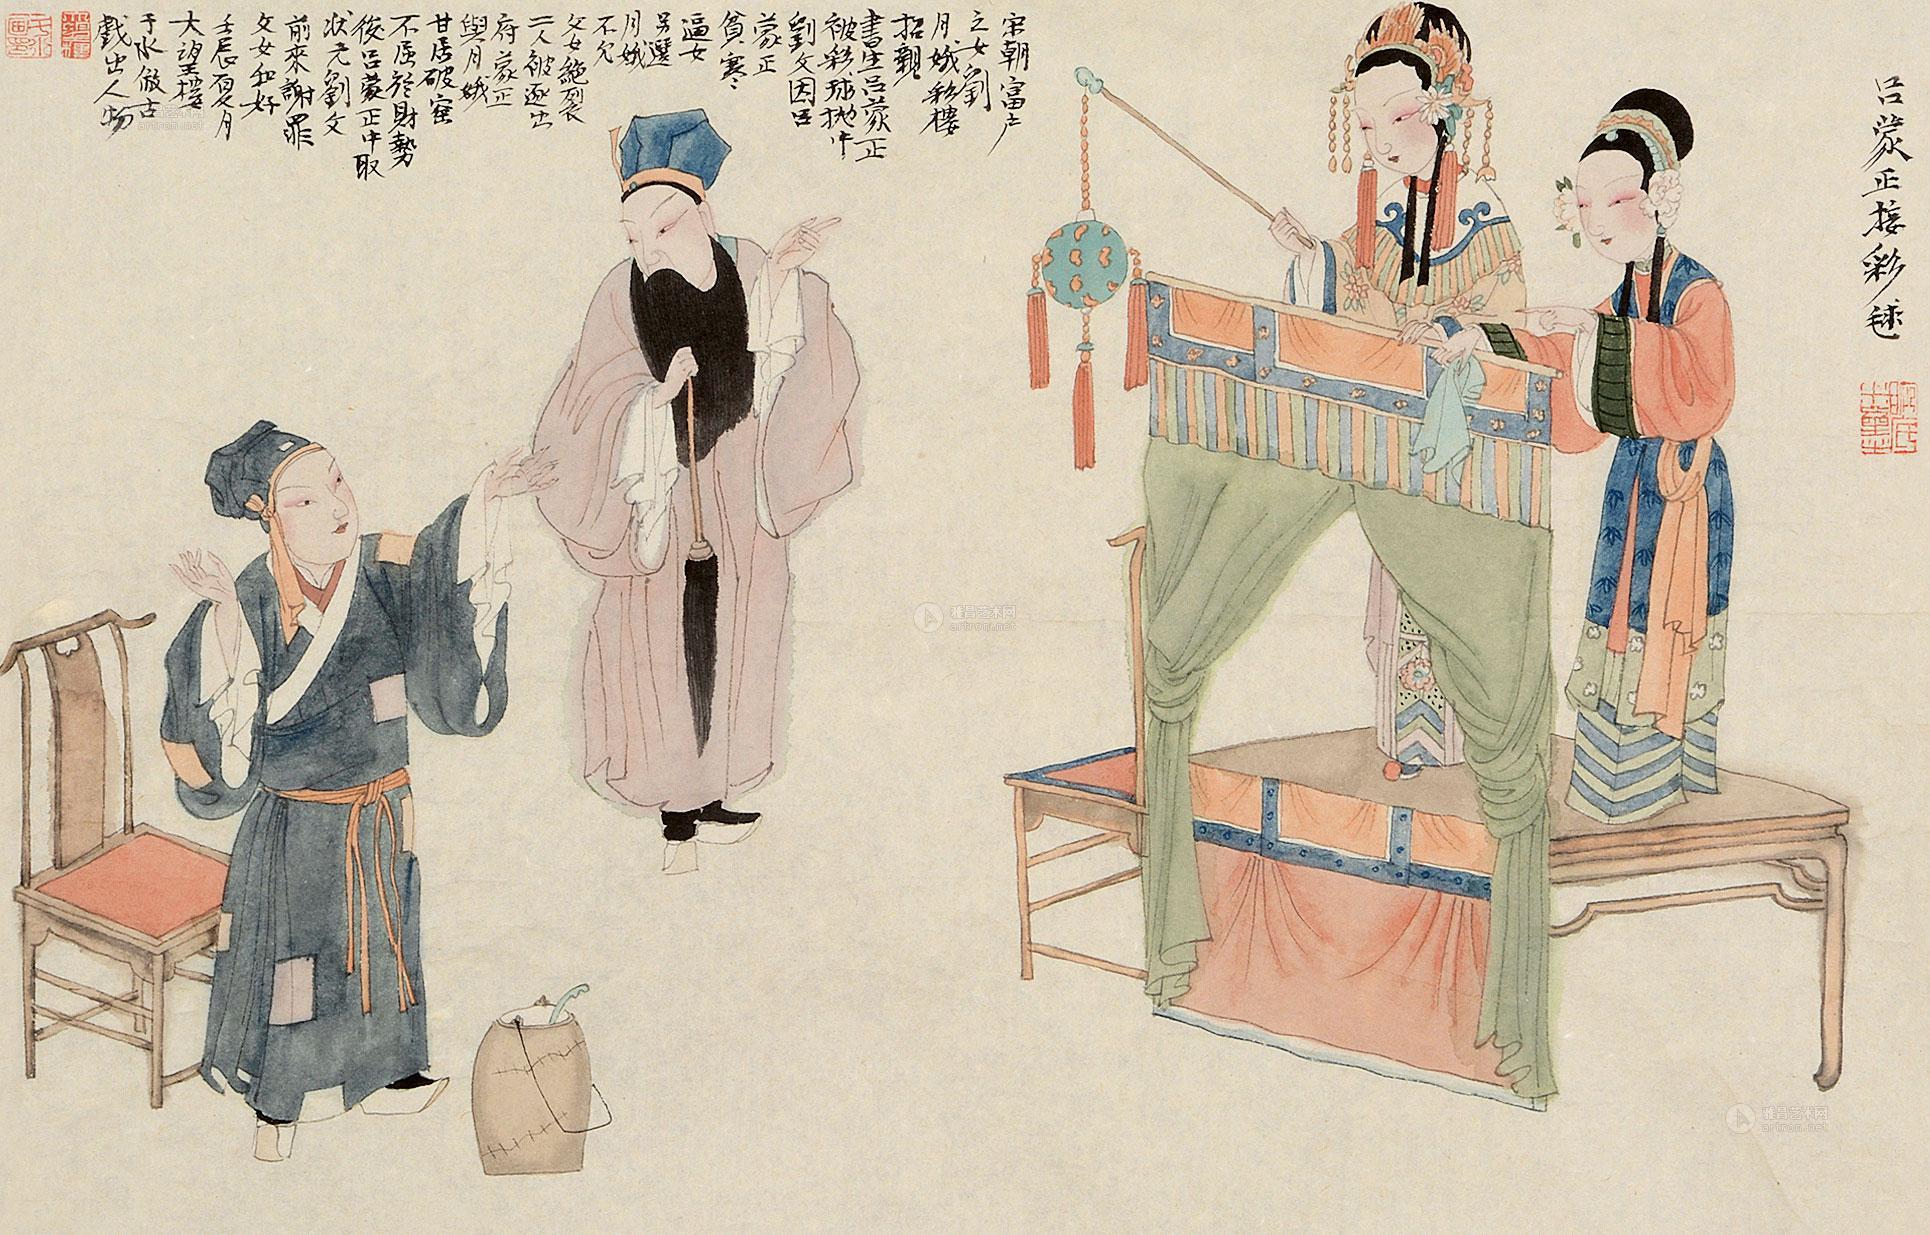 呂蒙正接彩毬
宋朝富户
之女劉
月娥彩樓
招親
書生呂蒙正
被彩球抛中
劉父因呂
蒙正
貧寒
逼女
另選
月娥
不允
父女絶裂
二人被逐出
府蒙正
與月娥
甘居破窑
不屈於財勢
後呂蒙正中取
狀元劉父
前來謝罪
父女和好
壬辰夏月
大望樓
于水倣古
戲出人物
雅昌艺术网
artron.net
雅昌艺术网
artron.net